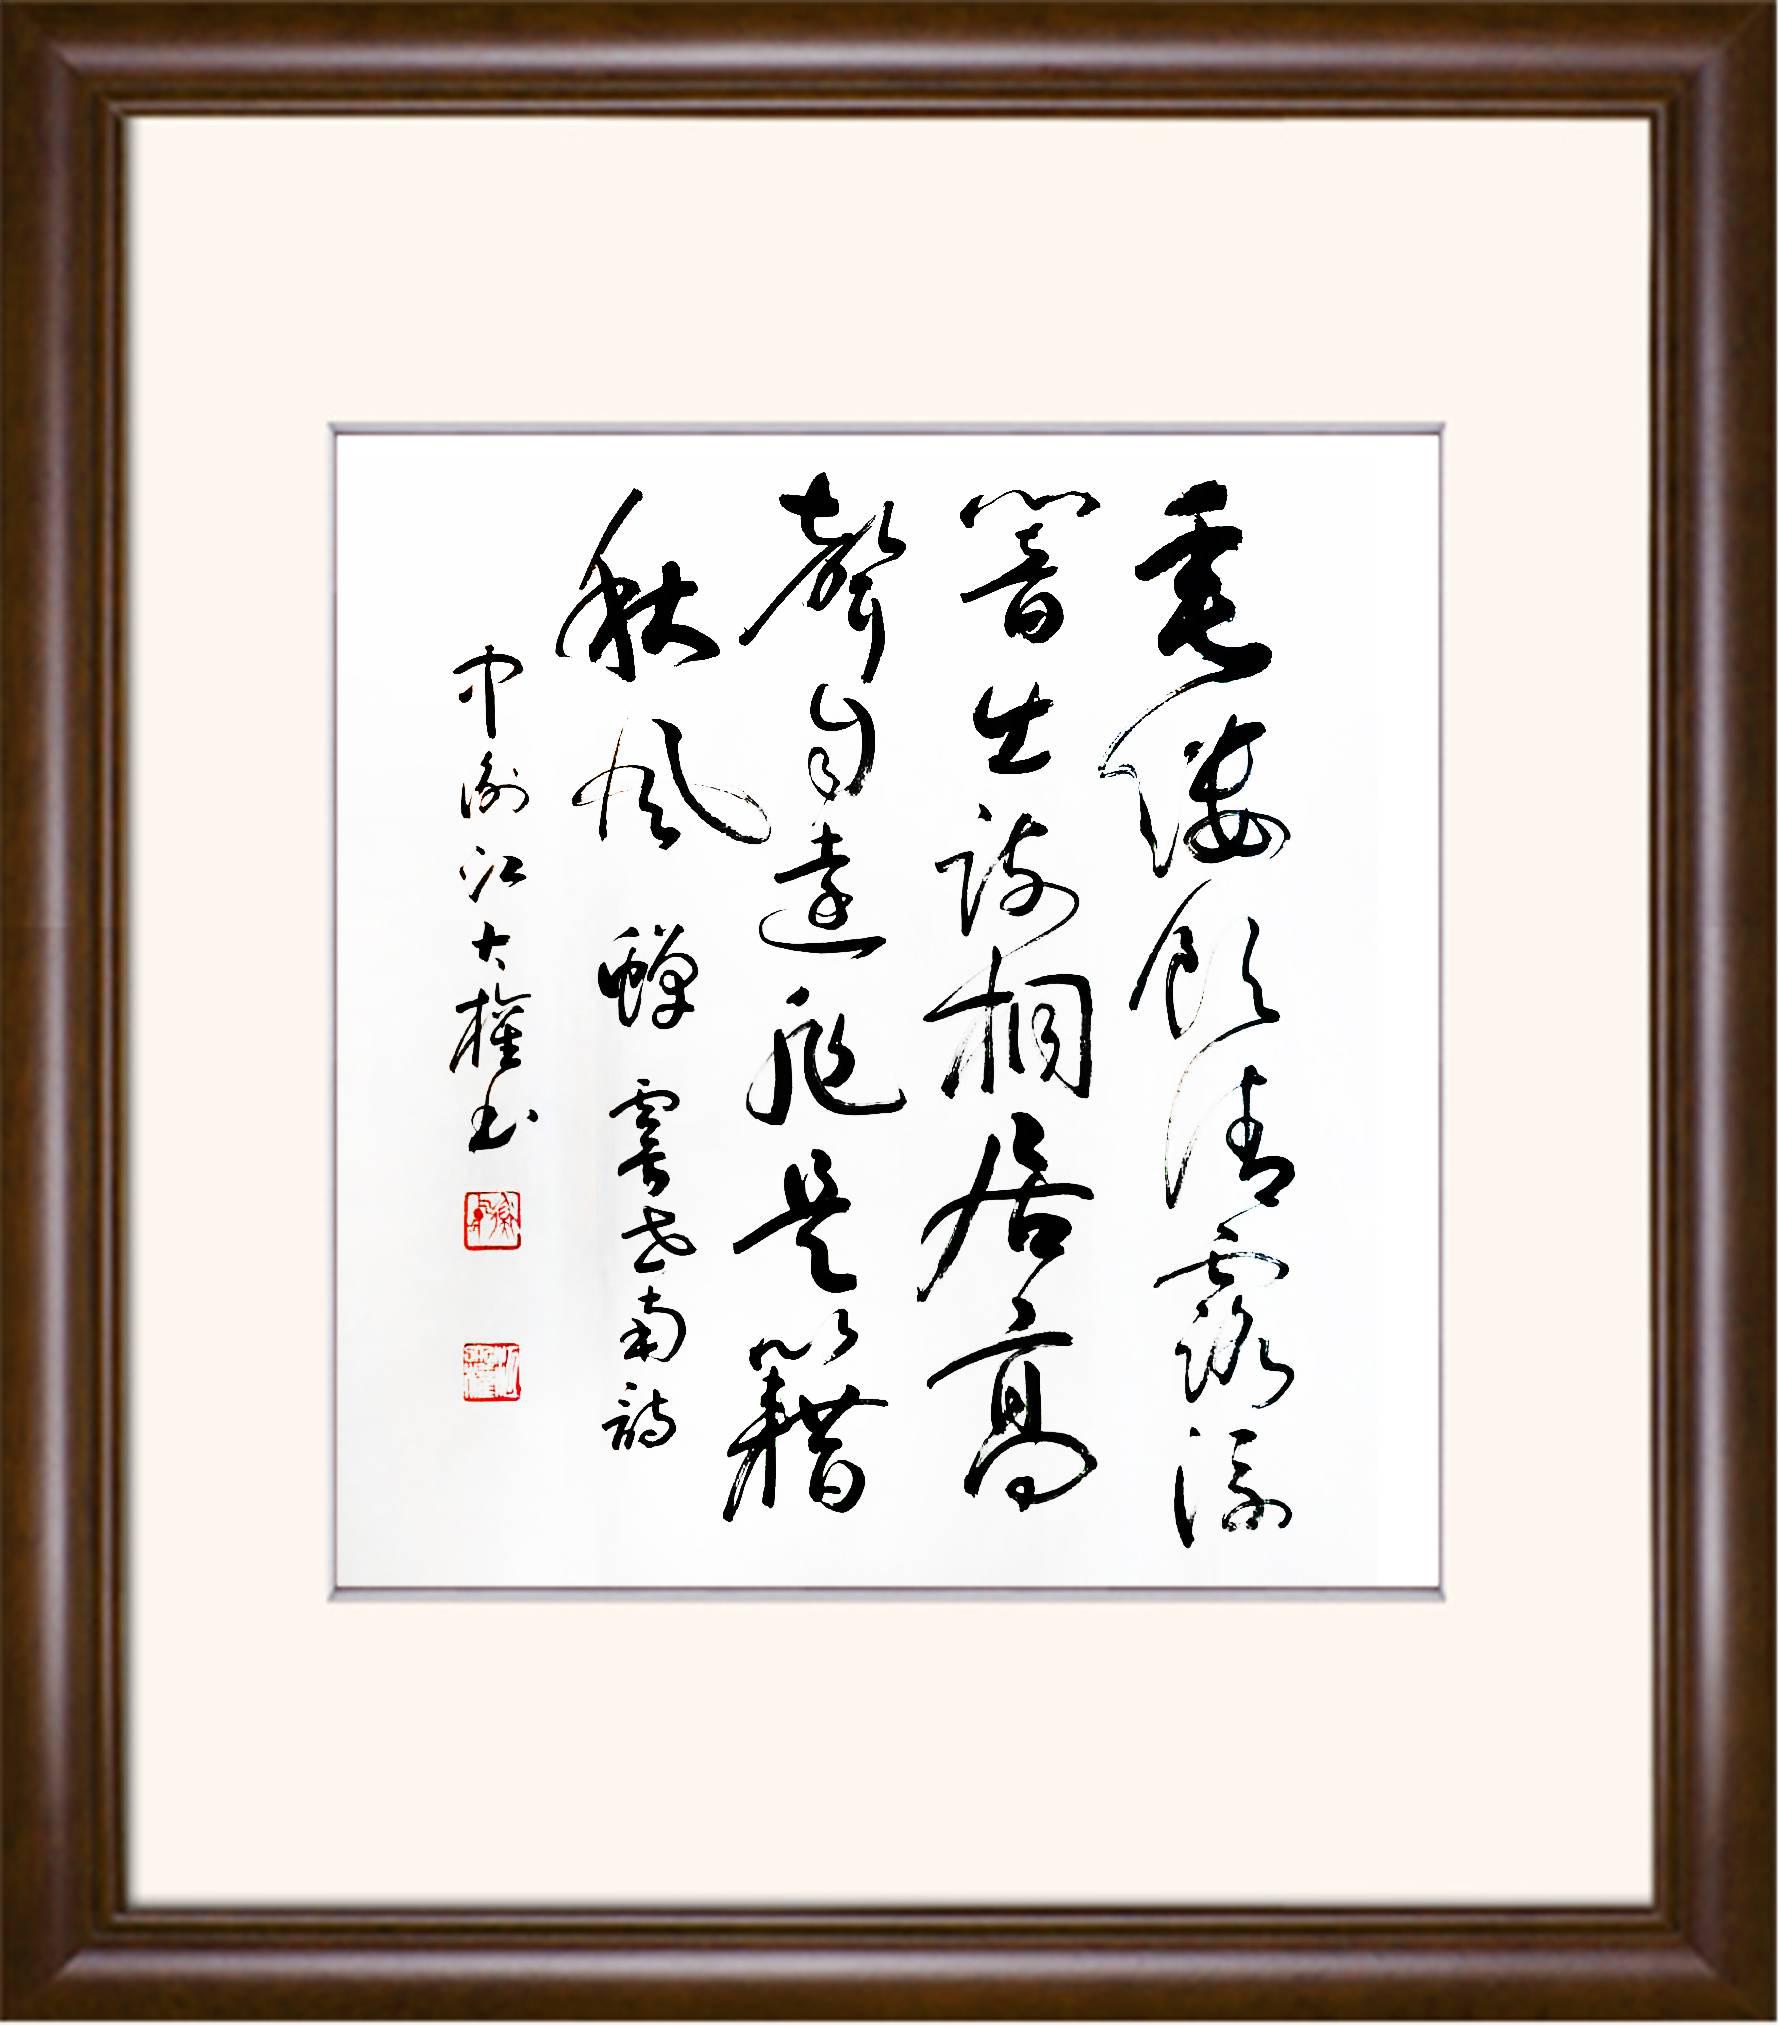 垂緌飲清露流
響出疏桐居高
聲自遠非是籍
秋風 蟬 虞世南詩
江大權书